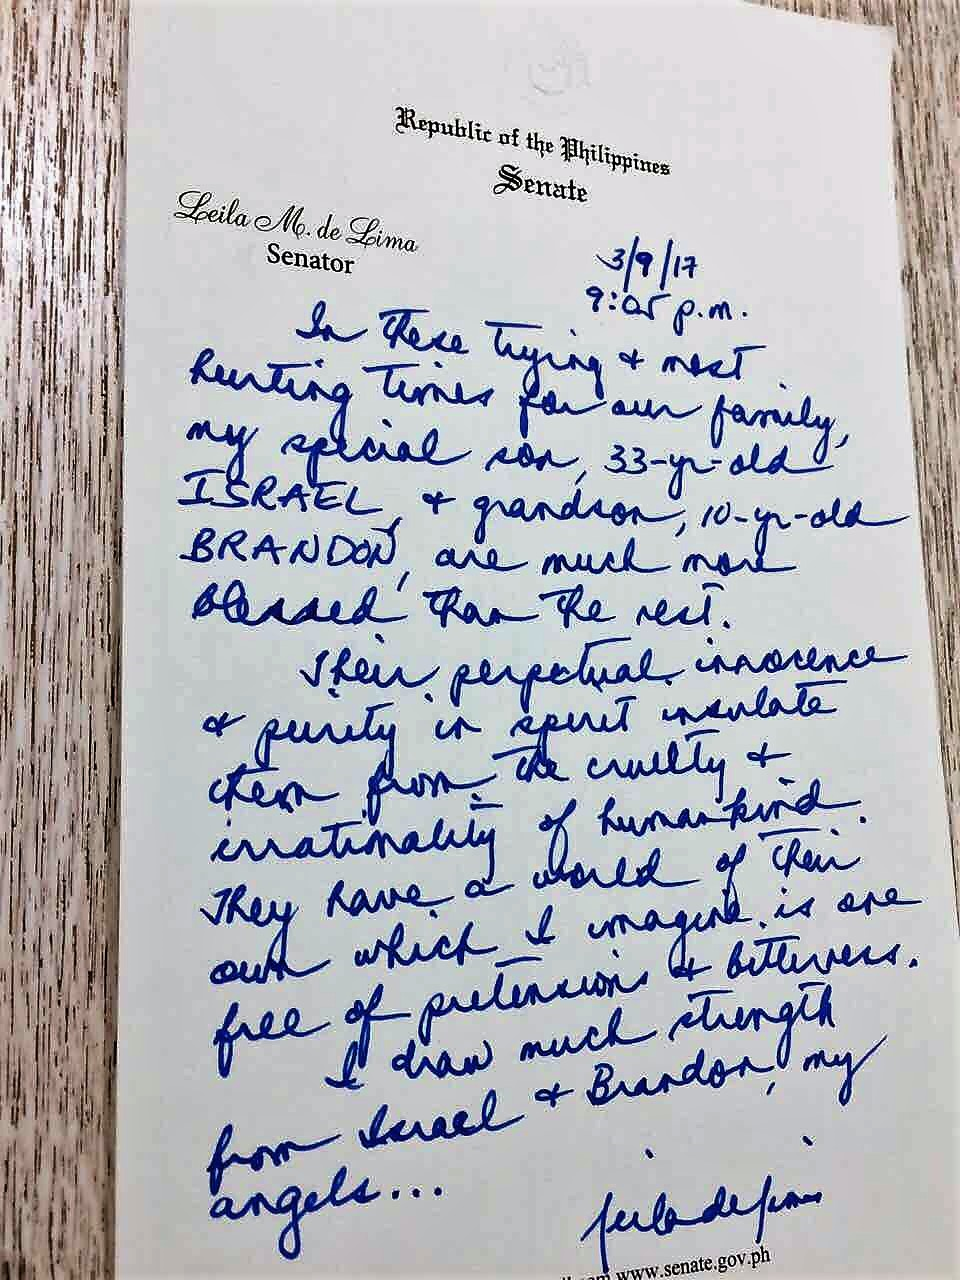 Republic of the Philippines
Senate
Leila M. de Lima
Senator
3/9/17
9:05 p.m.
In these trying & most
hurting times for our family,
my special son, 33-yr-old
ISRAEL, & grandson, 10-yr-old
BRANDON, are much more
blessed than the rest.
Their perpetual innocence
& purity in spirit insulate
them from the cruelty &
irrationality of humankind.
They have a world of their
own which I imagine is one
free of pretensions & bitterness.
I draw much strength
from Israel & Brandon, my
angels...
Leila de Lima
www.senate.gov.ph